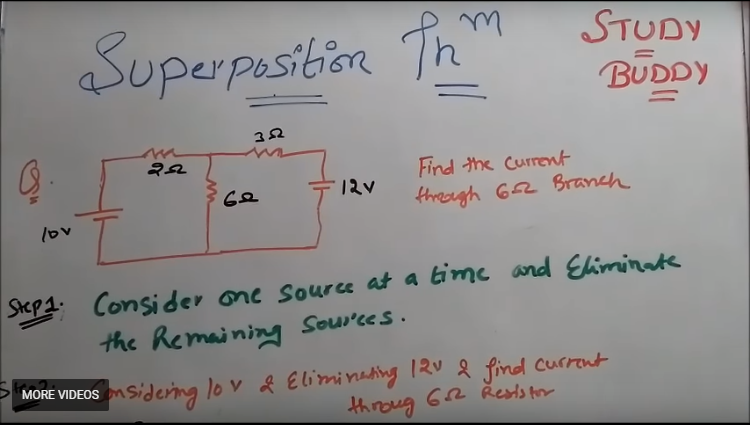 Superposition Th^m
STUDY
BUDDY
Q.
2Ω
3Ω
6Ω
10V
12V
Find the current
through 6Ω Branch
Step1. Consider one source at a time and Eliminate
the Remaining sources.
Considering 10V & Eliminating 12V & find current
throug 6Ω Resistor
MORE VIDEOS